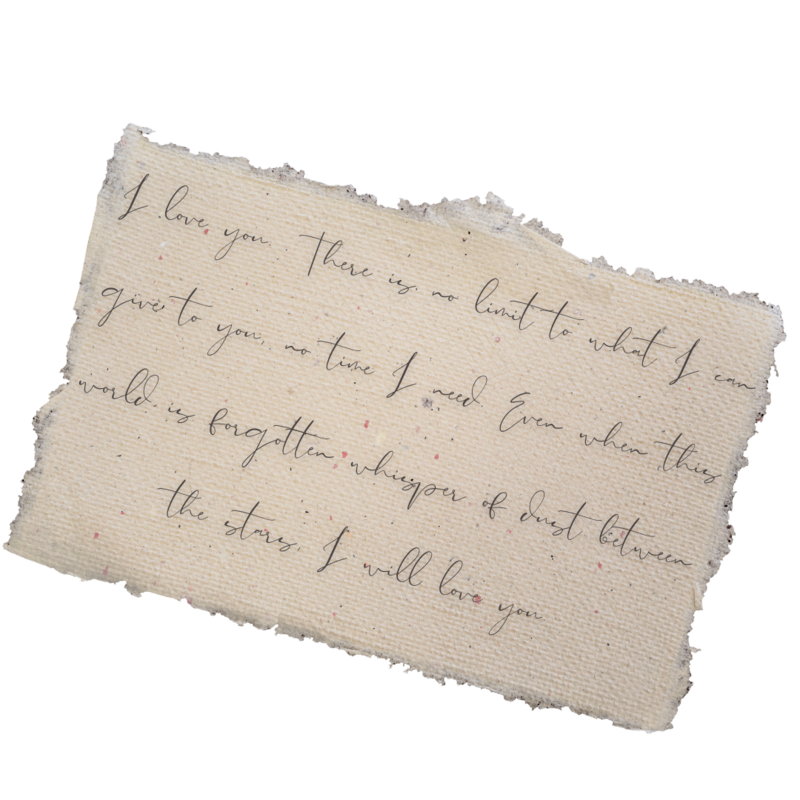 I love you. There is no limit to what I can
give to you, no time I need. Even when this
world is forgotten whisper of dust between
the stars, I will love you